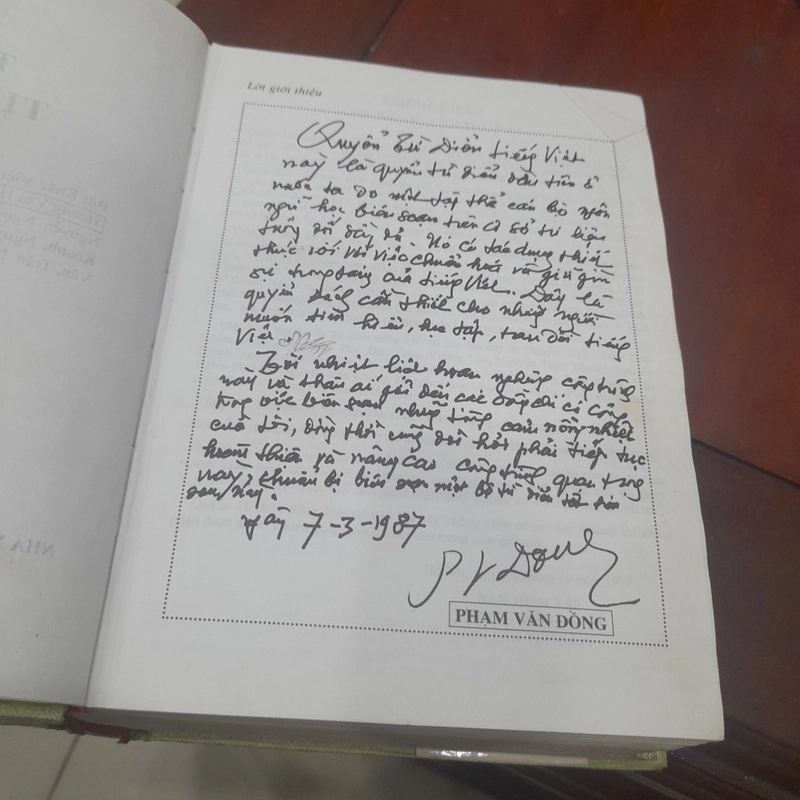 Lời giới thiệu
Quyển Từ Điển tiếng Việt
này là quyển từ điển đầu tiên ở
nước ta do một tập thể cán bộ ngôn
ngữ học biên soạn trên cơ sở tư liệu
tương đối đầy đủ. Nó có tác dụng thiết
thực đối với việc chuẩn hoá và giữ gìn
sự trong sáng của tiếng Việt. Đây là
quyển sách cần thiết cho những người
muốn tìm hiểu, học tập, trau dồi tiếng
Việt.
Tôi nhiệt liệt hoan nghênh công trình
này và thân ái gửi đến các đồng chí có công
trong việc biên soạn những lời nồng nhiệt
của tôi, đồng thời cũng đòi hỏi phải tiếp tục
hoàn thiện và nâng cao công trình quan trọng
này, chuẩn bị biên soạn một bộ từ điển
sau này.
ngày 7-3-1987
PVĐồng
PHẠM VĂN ĐỒNG
T
TI
Bùi Khắc Việ
Nguyễn
Khanh, Nguy
Vân, Trần
NHÀ